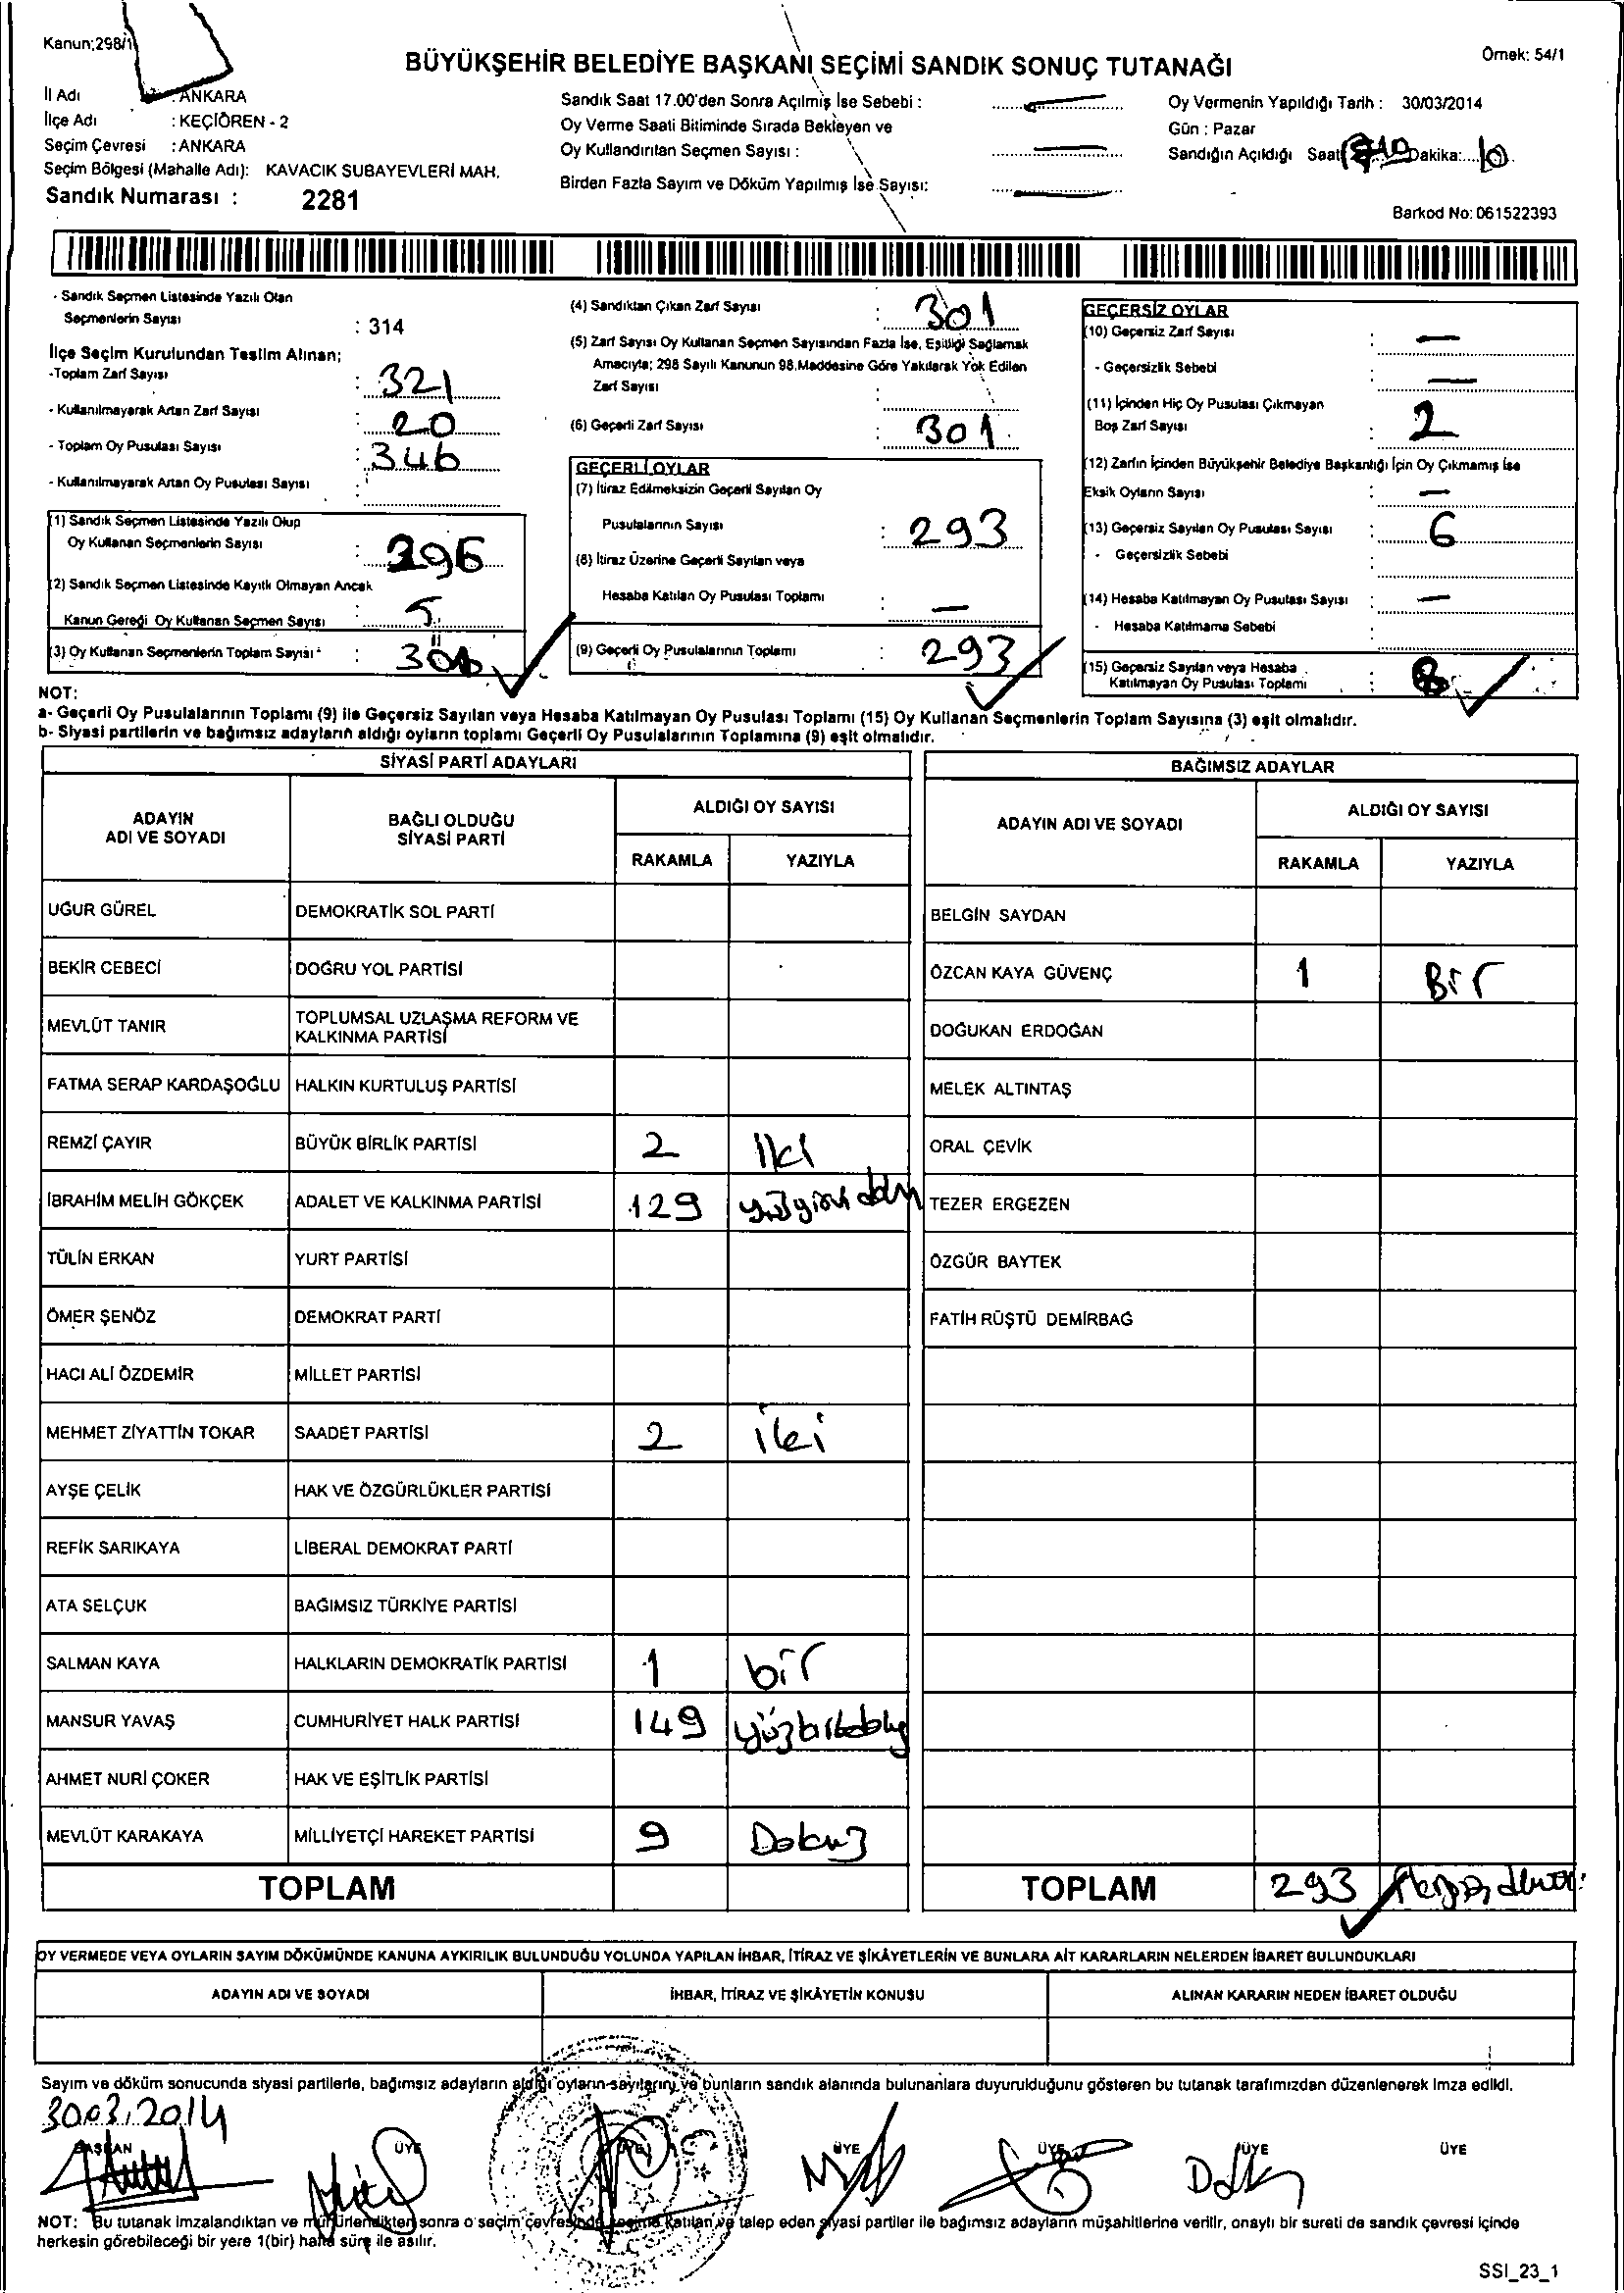 Kanun;298/1
Örnek: 54/1
BÜYÜKŞEHİR BELEDİYE BAŞKANI SEÇİMİ SANDIK SONUÇ TUTANAĞI
İl Adı : ANKARA
İlçe Adı : KEÇİÖREN - 2
Seçim Çevresi : ANKARA
Seçim Bölgesi (Mahalle Adı): KAVACIK SUBAYEVLERİ MAH.
Sandık Numarası : 2281
Sandık Saat 17.00'den Sonra Açılmış İse Sebebi :
Oy Verme Saati Bitiminde Sırada Bekleyen ve
Oy Kullandırılan Seçmen Sayısı :
Birden Fazla Sayım ve Döküm Yapılmış İse Sayısı:
Oy Vermenin Yapıldığı Tarih : 30/03/2014
Gün : Pazar
Sandığın Açıldığı Saat Dakika:.... 10
Barkod No: 061522393
- Sandık Seçmen Listesinde Yazılı Olan
Seçmenlerin Sayısı : 314
İlçe Seçim Kurulundan Teslim Alınan;
-Toplam Zarf Sayısı : 321
- Kullanılmayarak Artan Zarf Sayısı : 20
- Toplam Oy Pusulası Sayısı : 346
- Kullanılmayarak Artan Oy Pusulası Sayısı :
(1) Sandık Seçmen Listesinde Yazılı Olup
Oy Kullanan Seçmenlerin Sayısı : 296
(2) Sandık Seçmen Listesinde Kayıtlı Olmayan Ancak
Kanun Gereği Oy Kullanan Seçmen Sayısı : 5
(3) Oy Kullanan Seçmenlerin Toplam Sayısı :
(4) Sandıktan Çıkan Zarf Sayısı : 301
(5) Zarf Sayısı Oy Kullanan Seçmen Sayısından Fazla İse, Eşitliği Sağlamak
Amacıyla; 298 Sayılı Kanunun 98.Maddesine Göre Yakılarak Yok Edilen
Zarf Sayısı :
(6) Geçerli Zarf Sayısı : 301
GEÇERLİ OYLAR
(7) İtiraz Edilmeksizin Geçerli Sayılan Oy
Pusulalarının Sayısı : 293
(8) İtiraz Üzerine Geçerli Sayılan veya
Hesaba Katılan Oy Pusulası Toplamı : —
(9) Geçerli Oy Pusulalarının Toplamı : 293
GEÇERSİZ OYLAR
(10) Geçersiz Zarf Sayısı : —
- Geçersizlik Sebebi : —
(11) İçinden Hiç Oy Pusulası Çıkmayan
Boş Zarf Sayısı : 2
(12) Zarfın İçinden Büyükşehir Belediye Başkanlığı İçin Oy Çıkmamış İse
Eksik Oyların Sayısı : —
(13) Geçersiz Sayılan Oy Pusulası Sayısı : 6
- Geçersizlik Sebebi :
(14) Hesaba Katılmayan Oy Pusulası Sayısı : —
- Hesaba Katılmama Sebebi :
(15) Geçersiz Sayılan veya Hesaba
Katılmayan Oy Pusulası Toplamı : 8
NOT:
a- Geçerli Oy Pusulalarının Toplamı (9) ile Geçersiz Sayılan veya Hesaba Katılmayan Oy Pusulası Toplamı (15) Oy Kullanan Seçmenlerin Toplam Sayısına (3) eşit olmalıdır.
b- Siyasi partilerin ve bağımsız adayların aldığı oyların toplamı Geçerli Oy Pusulalarının Toplamına (9) eşit olmalıdır.
SİYASİ PARTİ ADAYLARI
ADAYIN ADI VE SOYADI
BAĞLI OLDUĞU SİYASİ PARTİ
ALDIĞI OY SAYISI
RAKAMLA YAZIYLA
UĞUR GÜREL DEMOKRATİK SOL PARTİ
BEKİR CEBECİ DOĞRU YOL PARTİSİ
MEVLÜT TANIR TOPLUMSAL UZLAŞMA REFORM VE KALKINMA PARTİSİ
FATMA SERAP KARDAŞOĞLU HALKIN KURTULUŞ PARTİSİ
REMZİ ÇAYIR BÜYÜK BİRLİK PARTİSİ 2 İki
İBRAHİM MELİH GÖKÇEK ADALET VE KALKINMA PARTİSİ 129
TÜLİN ERKAN YURT PARTİSİ
ÖMER ŞENÖZ DEMOKRAT PARTİ
HACI ALİ ÖZDEMİR MİLLET PARTİSİ
MEHMET ZİYATTİN TOKAR SAADET PARTİSİ 2 iki
AYŞE ÇELİK HAK VE ÖZGÜRLÜKLER PARTİSİ
REFİK SARIKAYA LİBERAL DEMOKRAT PARTİ
ATA SELÇUK BAĞIMSIZ TÜRKİYE PARTİSİ
SALMAN KAYA HALKLARIN DEMOKRATİK PARTİSİ 1 bir
MANSUR YAVAŞ CUMHURİYET HALK PARTİSİ 149
AHMET NURİ ÇOKER HAK VE EŞİTLİK PARTİSİ
MEVLÜT KARAKAYA MİLLİYETÇİ HAREKET PARTİSİ 9 Dokuz
TOPLAM
BAĞIMSIZ ADAYLAR
ADAYIN ADI VE SOYADI
ALDIĞI OY SAYISI
RAKAMLA YAZIYLA
BELGİN SAYDAN
ÖZCAN KAYA GÜVENÇ 1 Bir
DOĞUKAN ERDOĞAN
MELEK ALTINTAŞ
ORAL ÇEVİK
TEZER ERGEZEN
ÖZGÜR BAYTEK
FATİH RÜŞTÜ DEMİRBAĞ
TOPLAM 293
OY VERMEDE VEYA OYLARIN SAYIM DÖKÜMÜNDE KANUNA AYKIRILIK BULUNDUĞU YOLUNDA YAPILAN İHBAR, İTİRAZ VE ŞİKÂYETLERİN VE BUNLARA AİT KARARLARIN NELERDEN İBARET BULUNDUKLARI
ADAYIN ADI VE SOYADI İHBAR, İTİRAZ VE ŞİKÂYETİN KONUSU ALINAN KARARIN NEDEN İBARET OLDUĞU
Sayım ve döküm sonucunda siyasi partilerle, bağımsız adayların aldığı oyların sayılarını ve bunların sandık alanında bulunanlara duyurulduğunu gösteren bu tutanak tarafımızdan düzenlenerek imza edildi.
30.03.2014
BAŞKAN ÜYE ÜYE ÜYE ÜYE ÜYE ÜYE
NOT: Bu tutanak imzalandıktan ve mühürlendikten sonra o seçim çevresinde seçime katılan ve talep eden siyasi partiler ile bağımsız adayların müşahitlerine verilir, onaylı bir sureti de sandık çevresi içinde
herkesin görebileceği bir yere 1(bir) hafta süre ile asılır.
SSI_23_1